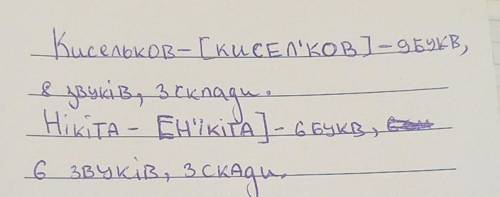 Кисельков-[КИСЕЛ'КОВ]-9БУКВ,
8 звуків, 3 склади.
Нікіта - [Н'ІКІТА]-6 БУКВ,
6 звуків, 3 скади.